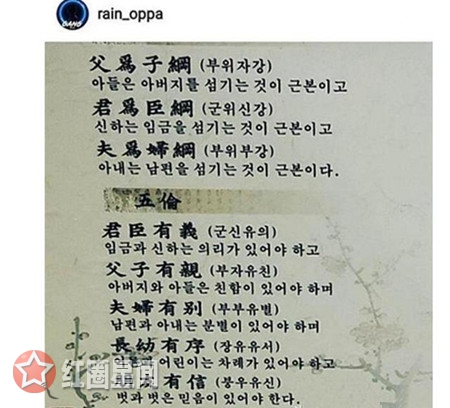 rain_oppa
父爲子綱 (부위자강)
아들은 아버지를 섬기는 것이 근본이고
君爲臣綱 (군위신강)
신하는 임금을 섬기는 것이 근본이고
夫爲婦綱 (부위부강)
아내는 남편을 섬기는 것이 근본이다.
五倫
君臣有義 (군신유의)
임금과 신하는 의리가 있어야 하고
父子有親 (부자유친)
아버지와 아들은 친함이 있어야 하며
夫婦有別 (부부유별)
남편과 아내는 분별이 있어야 하며
長幼有序 (장유유서)
어린이는 차례가 있어야 하고
有信 (붕우유신)
벗과 벗은 믿음이 있어야 한다.
红圈新闻